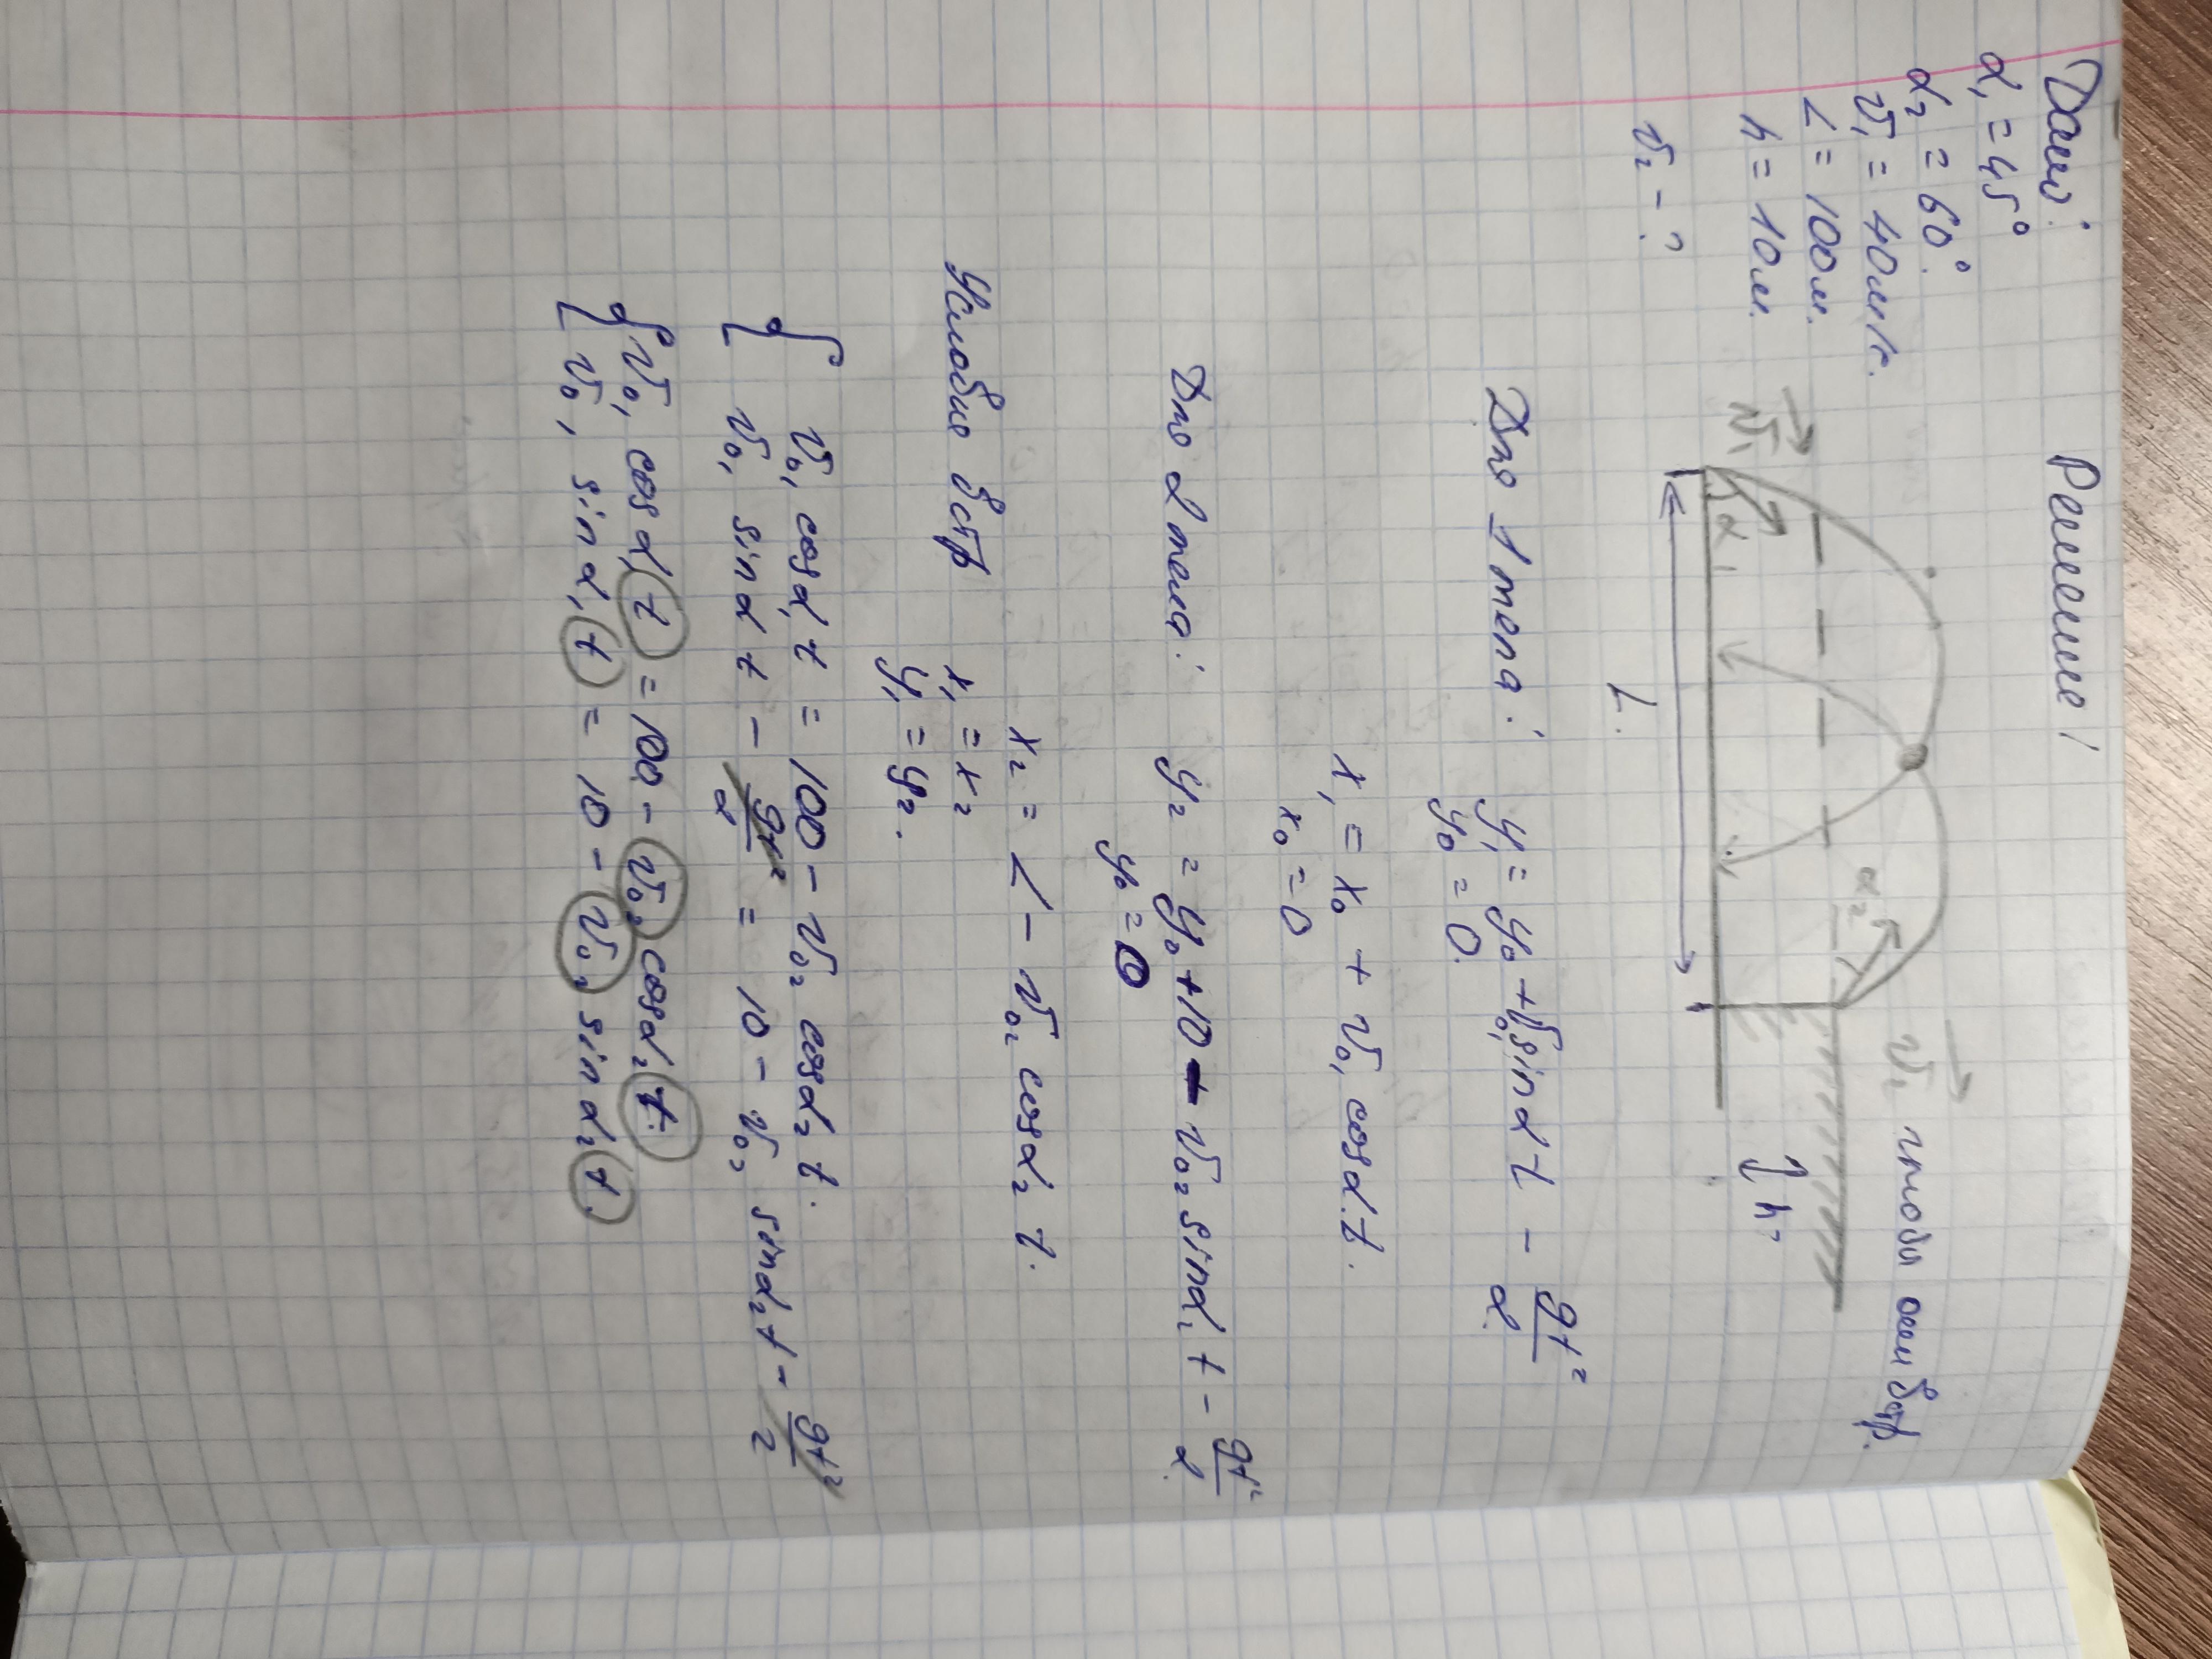 Дано: Решение!
α₁ = 45°
α₂ = 60°.
v₁ = 40м/с.
L = 100м.
h = 10м.
v₂ - ?
v₁ α₁ α₂ v₂ чтобы они встр.
L. h
Для 1 тела: y₁ = y₀ + v₀₁ sinα t - gt²/2
y₀ = 0.
x₁ = x₀ + v₀₁ cosα t.
x₀ = 0
Для 2 тела: y₂ = y₀ + 10 + v₀₂ sinα₂ t - gt²/2.
y₀ = 0
x₂ = L - v₀₂ cosα₂ t.
Условие встр x₁ = x₂
y₁ = y₂.
{ v₀₁ cosα₁ t = 100 - v₀₂ cosα₂ t.
v₀₁ sinα t - gt²/2 = 10 - v₀₂ sinα₂ t - gt²/2
{ v₀₁ cosα₁ t = 100 - v₀₂ cosα₂ t.
v₀₁ sinα₁ t = 10 - v₀₂ sinα₂ t.